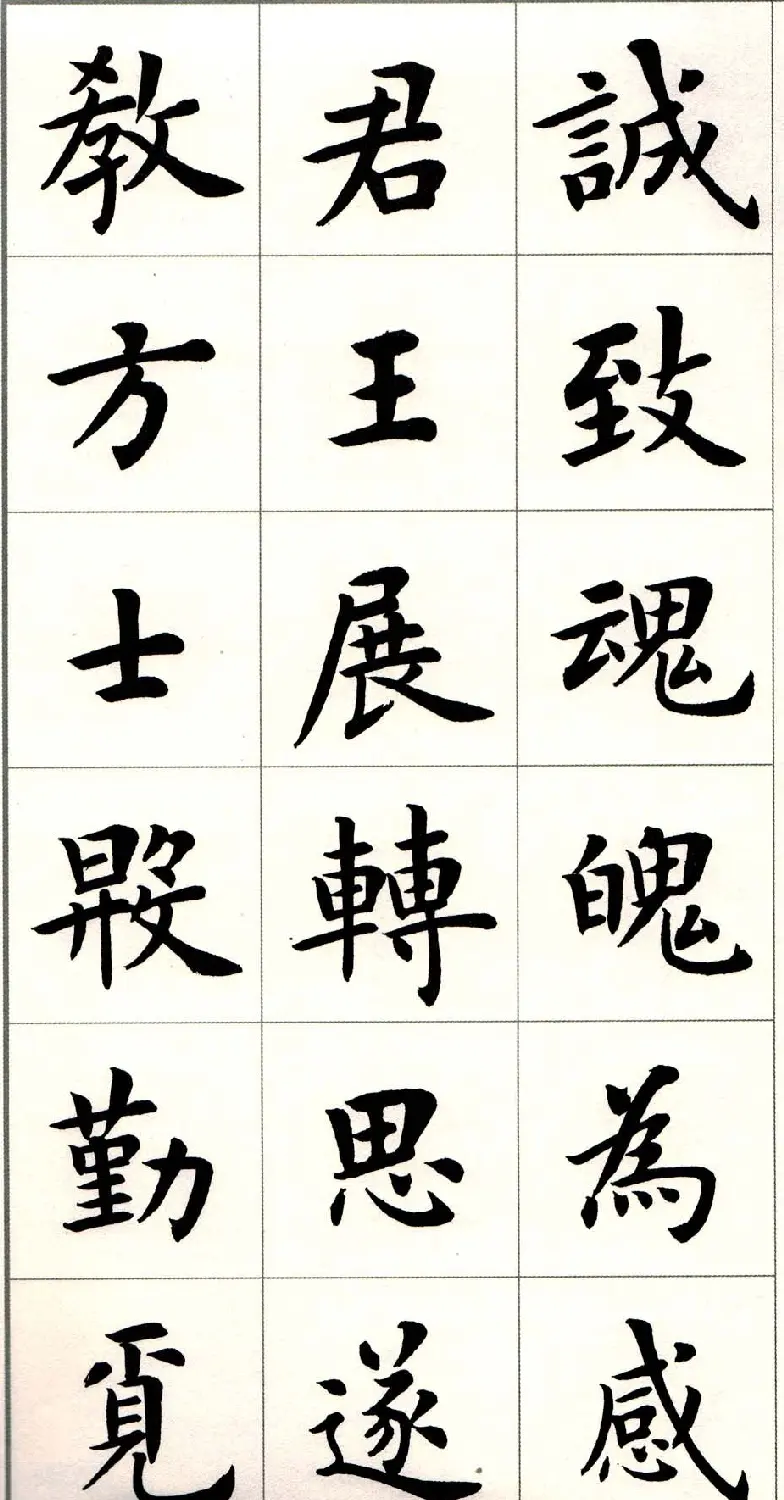 誠致魂魄為感
君王展轉思遂
教方士殷勤覓